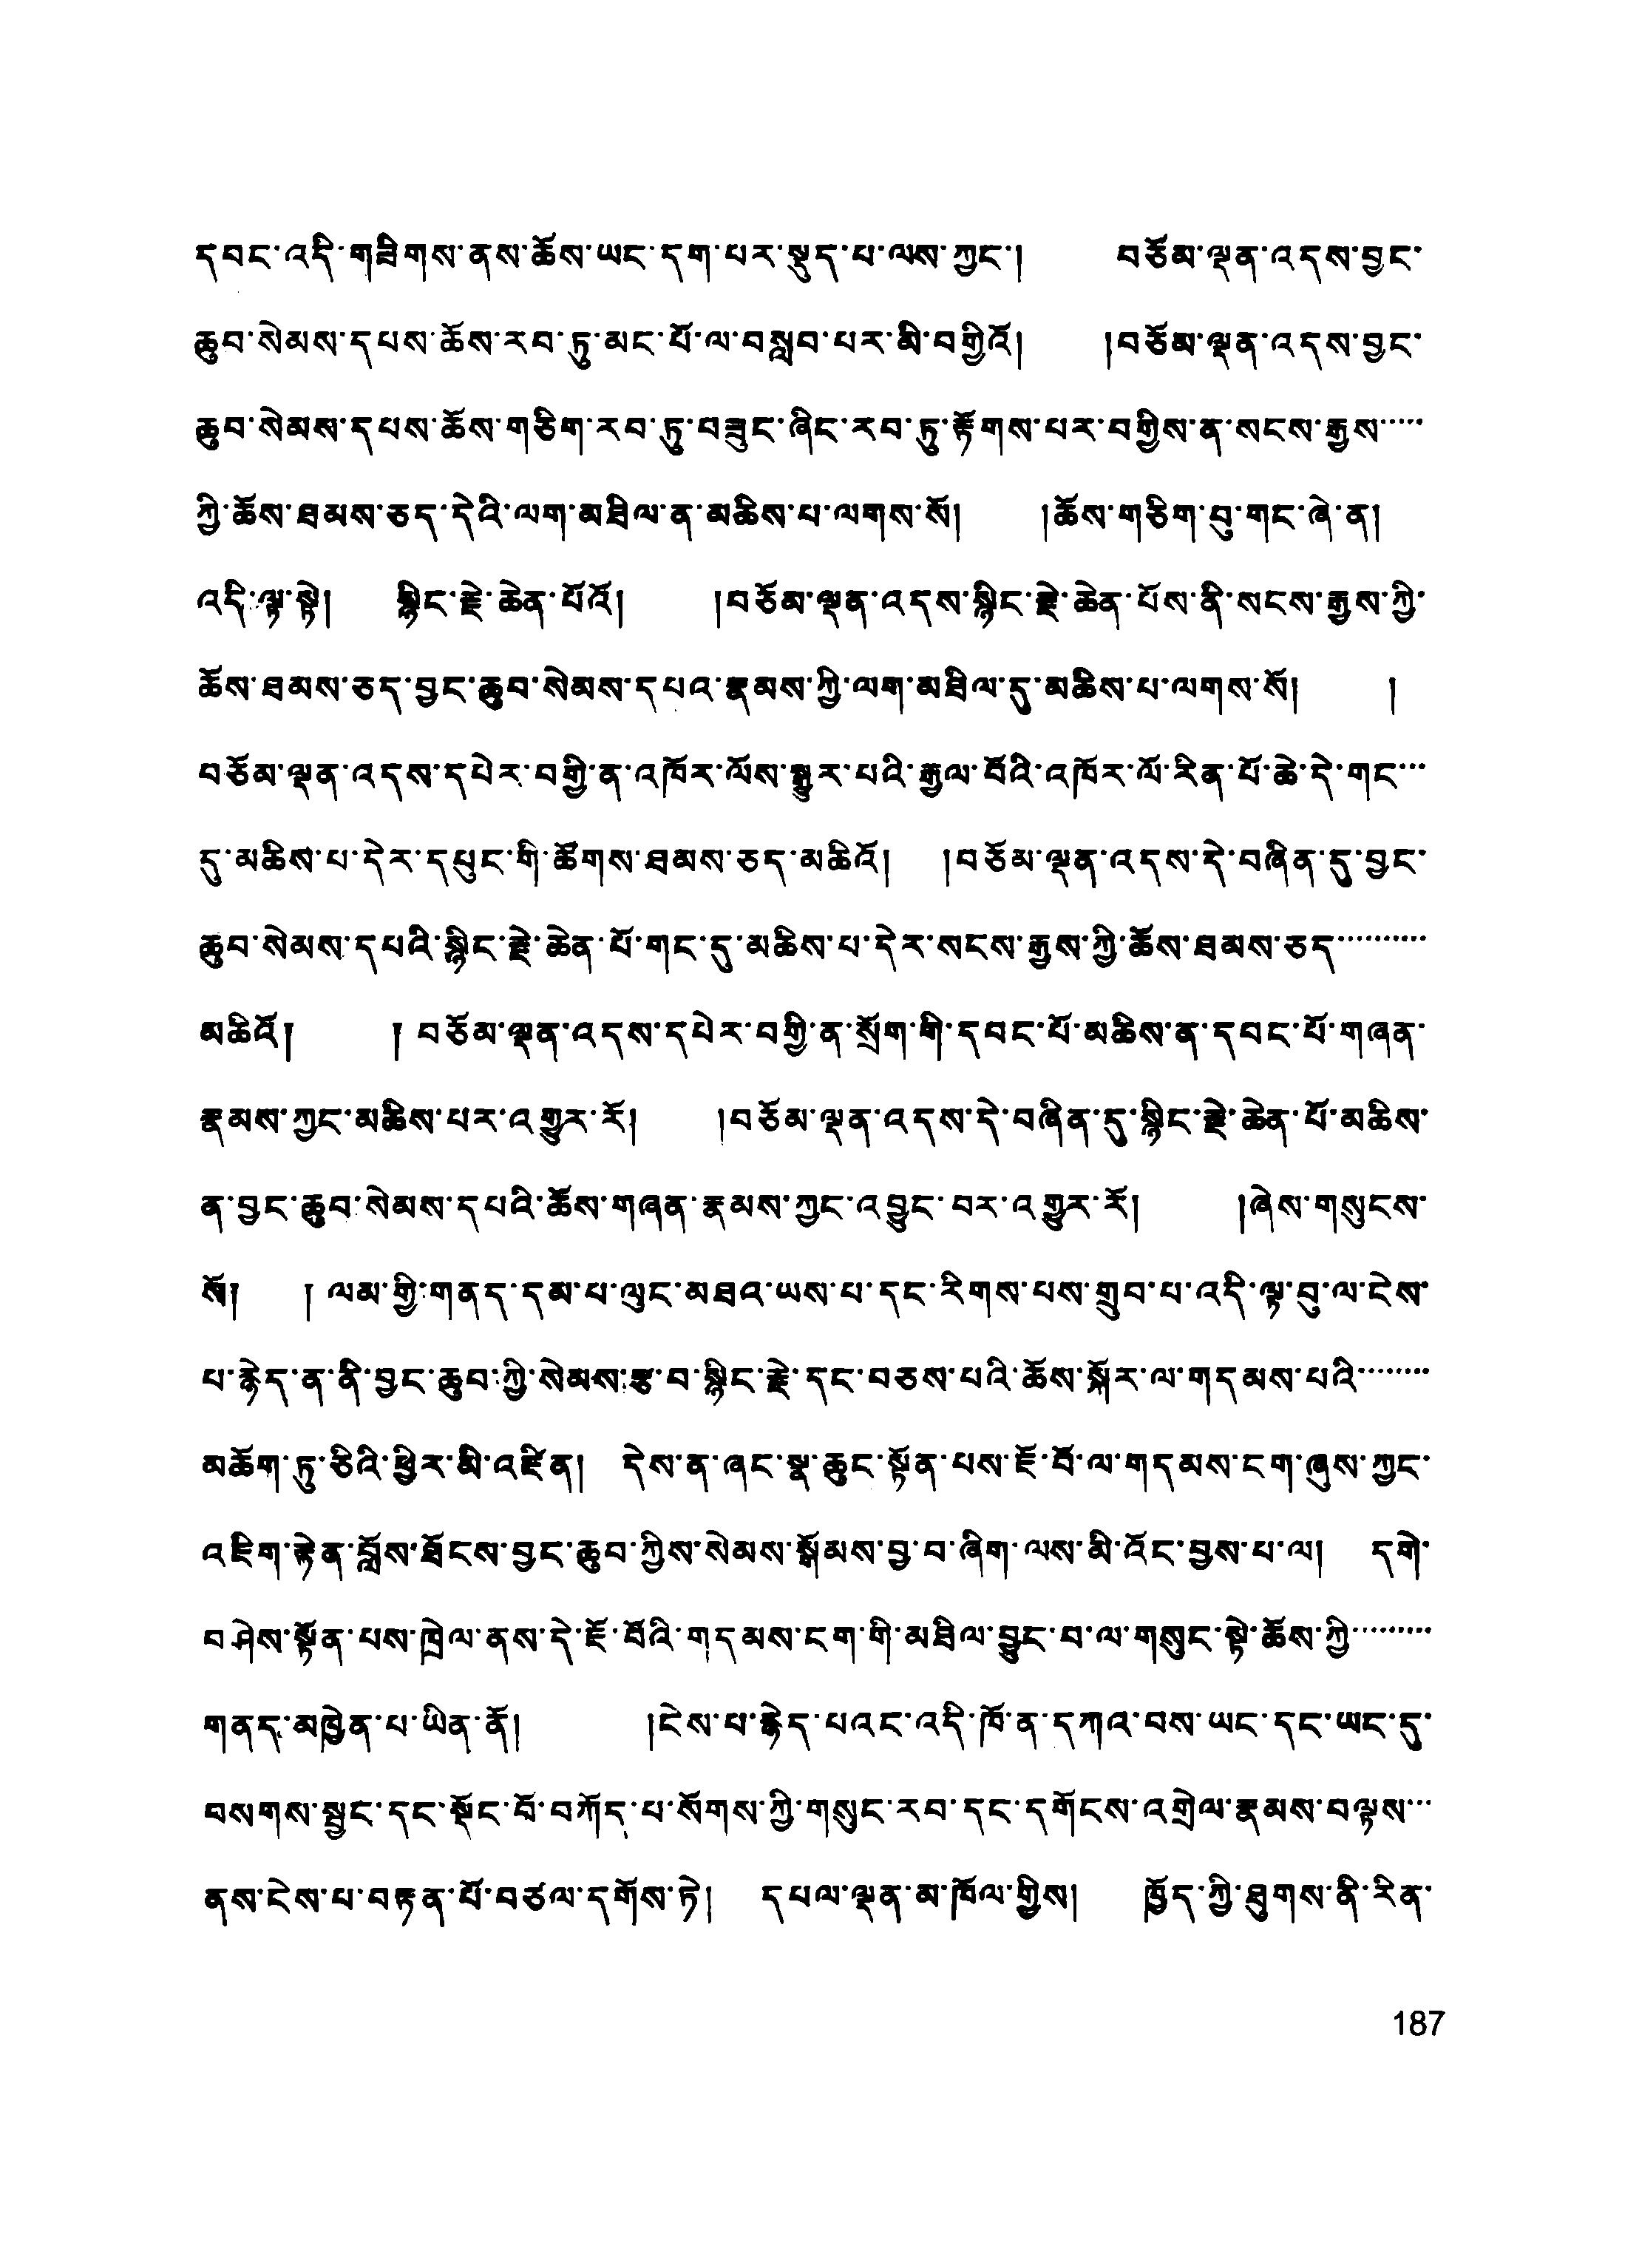 དབང་འདི་གཟིགས་ནས་ཆོས་ཡང་དག་པར་སྡུད་པ་ལས་ཀྱང་། བཅོམ་ལྡན་འདས་བྱང་
ཆུབ་སེམས་དཔས་ཆོས་རབ་ཏུ་མང་པོ་ལ་བསླབ་པར་མི་བགྱིའོ། །བཅོམ་ལྡན་འདས་བྱང་
ཆུབ་སེམས་དཔས་ཆོས་གཅིག་རབ་ཏུ་བཟུང་ཞིང་རབ་ཏུ་རྟོགས་པར་བགྱིས་ན་སངས་རྒྱས་་་་་
ཀྱི་ཆོས་ཐམས་ཅད་དེའི་ལག་མཐིལ་ན་མཆིས་པ་ལགས་སོ། །ཆོས་གཅིག་བུ་གང་ཞེ་ན།
འདི་ལྟ་སྟེ། སྙིང་རྗེ་ཆེན་པོའོ། །བཅོམ་ལྡན་འདས་སྙིང་རྗེ་ཆེན་པོས་ནི་སངས་རྒྱས་ཀྱི་
ཆོས་ཐམས་ཅད་བྱང་ཆུབ་སེམས་དཔའ་རྣམས་ཀྱི་ལག་མཐིལ་དུ་མཆིས་པ་ལགས་སོ། །
བཅོམ་ལྡན་འདས་དཔེར་བགྱི་ན་འཁོར་ལོས་སྒྱུར་པའི་རྒྱལ་བོའི་འཁོར་ལོ་རིན་པོ་ཆེ་དེ་གང་་་
དུ་མཆིས་པ་དེར་དཔུང་གི་ཚོགས་ཐམས་ཅད་མཆིའོ། །བཅོམ་ལྡན་འདས་དེ་བཞིན་དུ་བྱང་
ཆུབ་སེམས་དཔའི་སྙིང་རྗེ་ཆེན་པོ་གང་དུ་མཆིས་པ་དེར་སངས་རྒྱས་ཀྱི་ཆོས་ཐམས་ཅད་་་་་་་་་་
མཆིའོ། །བཅོམ་ལྡན་འདས་དཔེར་བགྱི་ན་སྲོག་གི་དབང་པོ་མཆིས་ན་དབང་པོ་གཞན་
རྣམས་ཀྱང་མཆིས་པར་འགྱུར་རོ། །བཅོམ་ལྡན་འདས་དེ་བཞིན་དུ་སྙིང་རྗེ་ཆེན་པོ་མཆིས་
ན་བྱང་ཆུབ་སེམས་དཔའི་ཆོས་གཞན་རྣམས་ཀྱང་འབྱུང་བར་འགྱུར་རོ། །ཞེས་གསུངས་
སོ། །ལམ་གྱི་གནད་དམ་པ་ལུང་མཐའ་ཡས་པ་དང་རིགས་པས་གྲུབ་པ་འདི་ལྟ་བུ་ལ་ངེས་
པ་རྙེད་ན་ནི་བྱང་ཆུབ་ཀྱི་སེམས་རྩ་བ་སྙིང་རྗེ་དང་བཅས་པའི་ཆོས་སྐོར་ལ་གདམས་པའི་་་་་་་་
མཆོག་ཏུ་ཅིའི་ཕྱིར་མི་འཛིན། དེས་ན་ཞང་སྣ་ཆུང་སྟོན་པས་ཇོ་བོ་ལ་གདམས་ངག་ཞུས་ཀྱང་
འཇིག་རྟེན་བློས་ཐོངས་བྱང་ཆུབ་ཀྱིས་སེམས་སྒོམས་བྱ་བ་ཞིག་ལས་མི་འོང་བྱས་པ་ལ། དགེ་
བཤེས་སྟོན་པས་ཁྲེལ་ནས་དེ་ཇོ་བོའི་གདམས་ངག་གི་མཐིལ་བྱུང་བ་ལ་གསུང་སྟེ་ཆོས་ཀྱི་་་་་་་་་
གནད་མཁྱེན་པ་ཡིན་ནོ། །ངེས་པ་རྙེད་པའང་འདི་ཁོ་ན་དཀའ་བས་ཡང་དང་ཡང་དུ་
བསགས་སྦྱང་དང་སྡོང་བོ་བཀོད་པ་སོགས་ཀྱི་གསུང་རབ་དང་དགོངས་འགྲེལ་རྣམས་བལྟས་་་
ནས་ངེས་པ་བརྟན་པོ་བཙལ་དགོས་ཏེ། དཔལ་ལྡན་མ་ཁོལ་གྱིས། ཁྱོད་ཀྱི་ཐུགས་ནི་རིན་
187